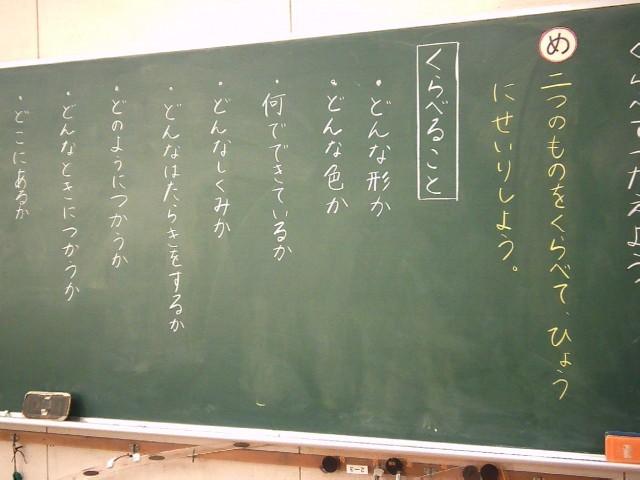 くらべてつたえよう
め
二つのものをくらべて、ひょう
にせいりしよう。
くらべること
・どんな形か
・どんな色か
・何でできているか
・どんなしくみか
・どんなはたらきをするか
・どのようにつかうか
・どんなときにつかうか
・どこにあるか